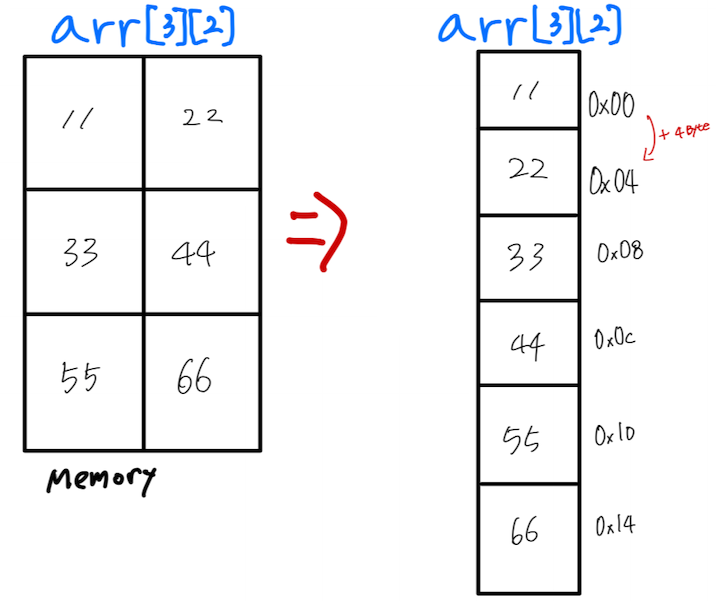 arr[3][2]
11 22
33 44
55 66
Memory
arr[3][2]
11 0x00
+ 4 Byte
22 0x04
33 0x08
44 0x0c
55 0x10
66 0x14